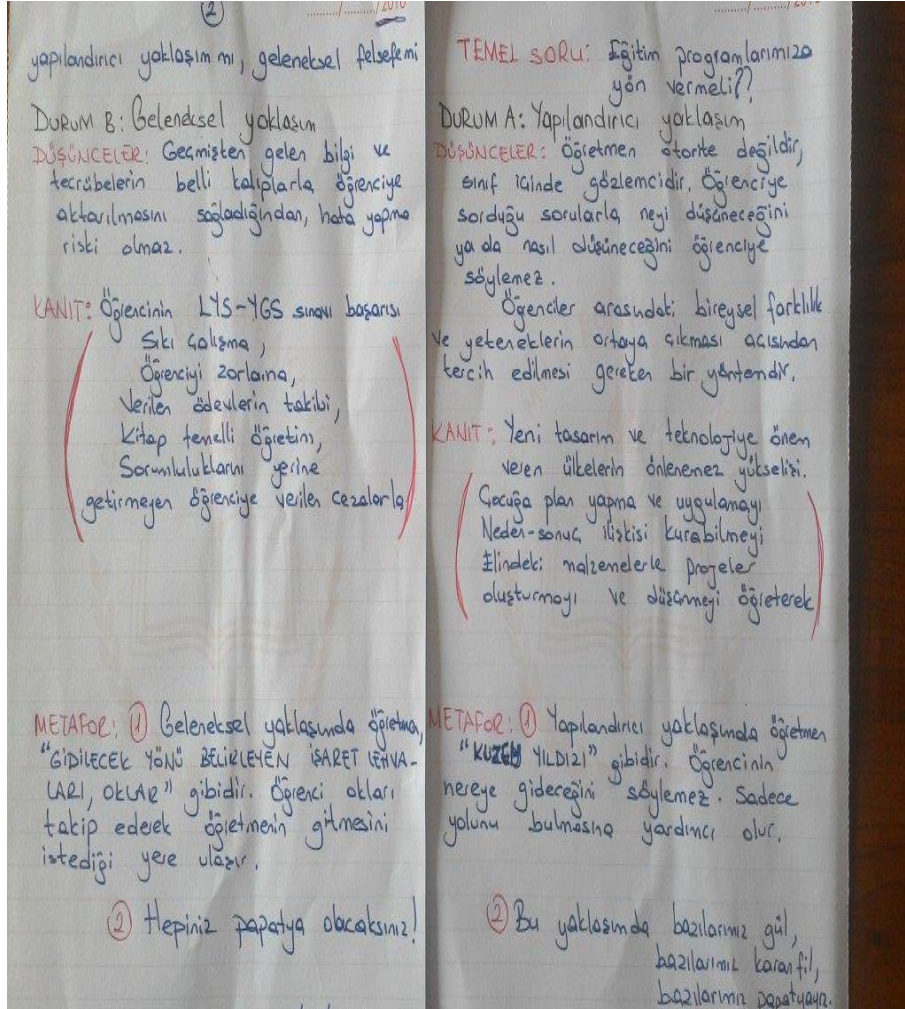 (2)
........./........./2010
yapılandırıcı yaklaşım mı, geleneksel felsefe mi
DURUM B: Geleneksel yaklaşım
DÜŞÜNCELER: Geçmişten gelen bilgi ve
tecrübelerin belli kalıplarla öğrenciye
aktarılmasını sağladığından, hata yapma
riski olmaz.
KANIT: Öğrencinin LYS-YGS sınavı başarısı
Sıkı çalışma,
Öğrenciyi zorlama,
Verilen ödevlerin takibi,
Kitap temelli öğretim,
Sorumluluklarını yerine
getirmeyen öğrenciye verilen cezalarla
METAFOR: 1 Geleneksel yaklaşımda öğretmen,
"GİDİLECEK YÖNÜ BELİRLEYEN İŞARET LEHVA-
LARI, OKLAR" gibidir. Öğrenci okları
takip ederek öğretmenin gitmesini
istediği yere ulaşır.
2 Hepiniz papatya olacaksınız!
TEMEL SORU: Eğitim programlarımıza
yön vermeli??
DURUM A: Yapılandırıcı yaklaşım
DÜŞÜNCELER: Öğretmen otorite değildir,
sınıf içinde gözlemcidir. Öğrenciye
sorduğu sorularla neyi düşüneceğini
ya da nasıl düşüneceğini öğrenciye
söylemez.
Öğenciler arasındaki bireysel farklılık
ve yeteneklerin ortaya çıkması açısından
tercih edilmesi gereken bir yöntemdir.
KANIT: Yeni tasarım ve teknolojiye önem
veren ülkelerin önlenemez yükselişi.
Çocuğa plan yapma ve uygulamayı
Neden-sonuç ilişkisi kurabilmeyi
Elindeki malzemelerle projeler
oluşturmayı ve düşünmeyi öğreterek
METAFOR: 1 Yapılandırıcı yaklaşımda öğretmen
"KUZEY YILDIZI" gibidir. Öğrencinin
nereye gideceğini söylemez. Sadece
yolunu bulmasına yardımcı olur.
2 Bu yaklaşımda bazılarımız gül,
bazılarımız karanfil,
bazılarımız papatyayız.